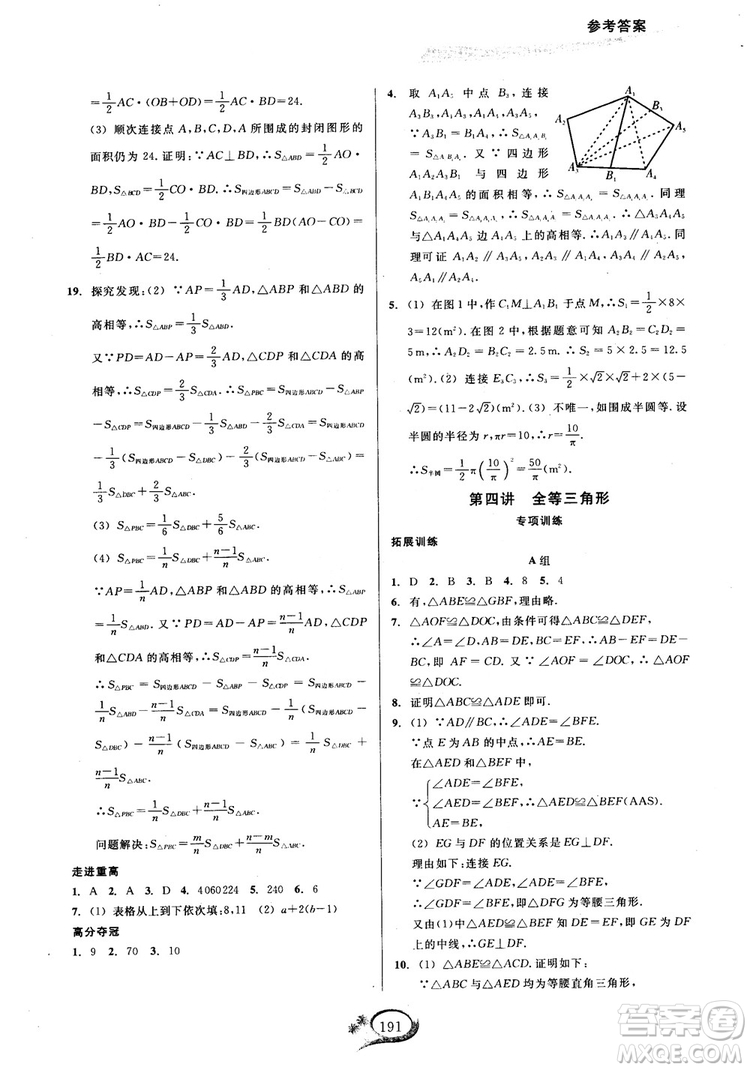 参考答案
=1/2AC·(OB+OD)=1/2AC·BD=24.
(3) 顺次连接点A,B,C,D,A所围成的封闭图形的
面积仍为24.证明:∵AC⊥BD,∴S△ABD=1/2AO·
BD,S△BCD=1/2CO·BD.∴S四边形ABCD=S△ABD-
S△BCD=1/2AO·BD-1/2CO·BD=1/2(AO-CO)·
BD=1/2AC·BD=24.
19. 探究发现:(2) ∵AP=1/3AD,△ABP和△ABD的
高相等,∴S△ABP=1/3S△ABD.
又∵PD=AD-AP=2/3AD,△CDP和△CDA的高
相等,∴S△CDP=2/3S△CDA.∴S△PBC=S四边形ABCD-S△ABP
-S△CDP=S四边形ABCD-1/3S△ABD-2/3S△CDA=S四边形ABCD
-1/3(S四边形ABCD-S△DBC)-2/3(S四边形ABCD-S△ABC)=
2/3S△DBC+1/3S△ABC.
(3) S△PBC=1/6S△DBC+5/6S△ABC.
(4) S△PBC=1/nS△DBC+(n-1)/nS△ABC.
∵AP=1/nAD,△ABP和△ABD的高相等,∴S△ABP=
1/nS△ABD.又∵PD=AD-AP=(n-1)/nAD,△CDP
和△CDA的高相等,∴S△CDP=(n-1)/nS△CDA.
∴S△PBC=S四边形ABCD-S△ABP-S△CDP=S四边形ABCD-
1/nS△ABD-(n-1)/nS△CDA=S四边形ABCD-1/n(S四边形ABCD-
S△DBC)-(n-1)/n(S四边形ABCD-S△ABC)=1/nS△DBC+
(n-1)/nS△ABC.
∴S△PBC=1/nS△DBC+(n-1)/nS△ABC.
问题解决:S△PBC=m/nS△DBC+(n-m)/nS△ABC.
走进重高
1. A 2. A 3. D 4. 4060224 5. 240 6. 6
7. (1) 表格从上到下依次填:8,11 (2) a+2(b-1)
高分夺冠
1. 9 2. 70 3. 10
4. 取A1A5中点B3,连接
A3B3,A3A1,A3A5,A3A4.
∵A5B3=B3A1,
A1 A2 B3 A5 A3 B1 A4
与四边形
A1A5A4B1的面积相等,
与△A1A4A5边A4A5上的高相等.∴A1A3∥A4A5.同
5. (1) 在图1中,作C1M⊥A1B1于点M,∴S1=1/2×8×
3=12(m²).在图2中,根据题意可知A2B2=C2D2=
5 m,∴A2D2=B2C2=2.5 m.∴S2=2.5×5=12.5
(m²).(2) 连接E3C3,∴S3=1/2×√2×√2+√2×(5-
√2)=(11-2√2)(m²).(3) 不唯一,如围成半圆等.设
半圆的半径为r,πr=10,∴r=10/π.
∴S半圆=1/2π(10/π)²=50/π(m²).
第四讲 全等三角形
专项训练
拓展训练
A组
1. D 2. B 3. B 4. 8 5. 4
6. 有,△ABE≌△GBF.理由略.
7. △AOF≌△DOC,由条件可得△ABC≌△DEF,
∴∠A=∠D,AB=DE,BC=BF.∴AB-BF=
DE-BC,即AF=CD.∴△AOF≌△DOC.
8. 证明△ABC≌△ADE即可.
9. (1) ∵AD∥BC,∴∠ADE=∠BFE.
∵点E为AB的中点,∴AE=BE.
在△AED和△BFE中,
∵{∠ADE=∠BFE,
∠AED=∠BEF,∴△AED≌△BFE(AAS).
AE=BE,
(2) EG与DF的位置关系是EG⊥DF.
理由如下:连接EG.
∵∠GDF=∠ADE,∠ADE=∠BFE,
∴∠GDF=∠BFE.∴DG=FG.
又由(1)中△AED≌△BFE得DE=EF,即GE为DF
上的中线,∴GE⊥DF.
10. (1) △ABE≌△ACD.证明如下:
∵△ABC与△AED均为等腰直角三角形,
191
答案圈